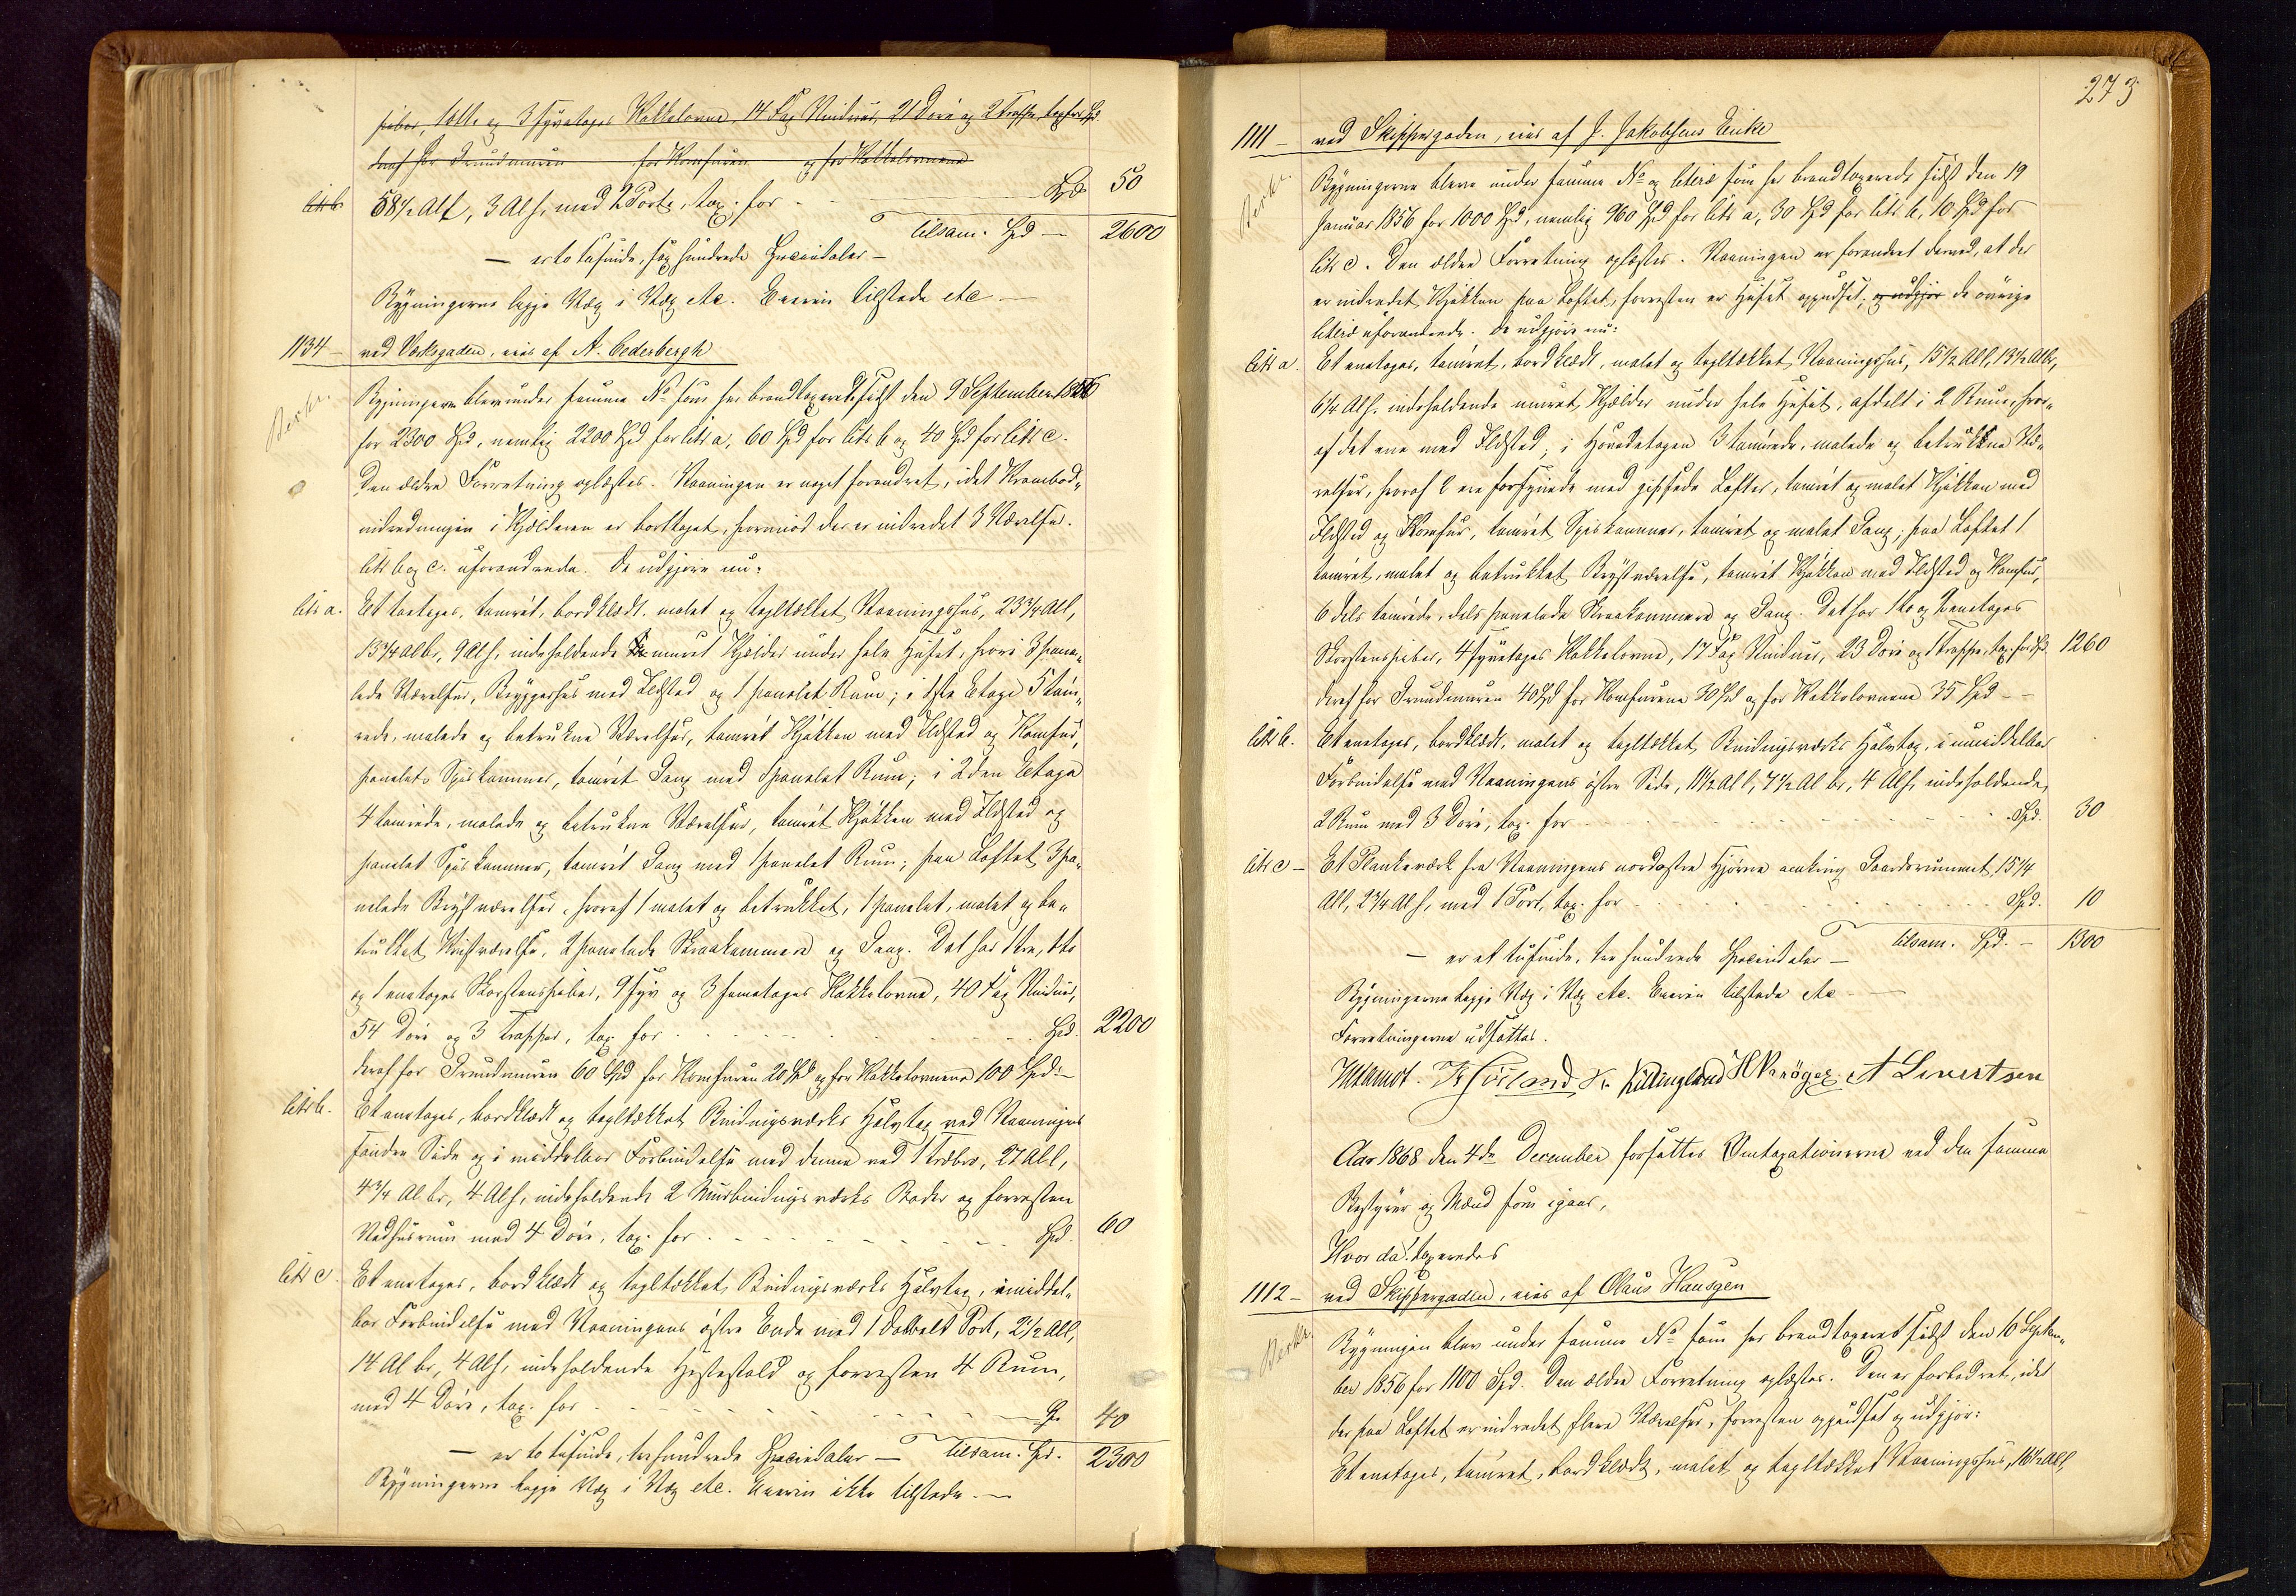 piber, 1 otte og 3 syvetages Kakkelovne, 14 Fag Vinduer, 21 Döre og 2 Trapper, tax. for Spd.
deraf for Grundmuren for Komfuren og for Kakkelovnene
litr b. 58½ Al l, 3 Al h, med 2 Porte, tax. for - Spd 50
tilsam. Spd — 2600
— er to tusinde, sex hundrede Speciedaler —
Bygningerne ligge Væg i Væg etc. Eieren tilstede etc. —
1134 — ved Værksgaden, eies af A. Cederbergh
Berkr.
Bygningerne bleve under samme No som her brandtaxerede sidst den 9 September 1856
for 2300 Spd, nemlig 2200 Spd for litr a, 60 Spd for litr b og 40 Spd for litr c.
Den ældre Forretning oplæstes. Vaaningen er noget forandret, idet Krambod„
indredningen i Kjælderen er borttaget, hvorimod der er indredet 3 Værelser.
litr b og c. uforandrede. De udgjøre nu:
litr a. Et toetages, tømret, bordklædt, malet og tegltækket Vaaningshus, 23¾ Al l,
13¾ Al br, 9 Al h, indeholdende muret Kjælder under hele Huset, hvori 3 pane„
lede Værelser, Bryggerhus med Ildsted og 1 panelet Rum; i 1ste Etage 5 töm„
rede, malede og betrukne Værelser, tømret Kjøkken med Ildsted og Komfur,
panelet Spiskammer, tømret Gang med 1 panelet Rum; i 2den Etage
4 tømrede, malede og betrukne Værelser, tømret Kjøkken med Ildsted og
panelet Spiskammer, tømret Gang med 1 panelet Rum; paa Loftet 3 pa„
nelede Kvistværelser, hvoraf 1 malet og betrukket, 1 panelet, malet og be„
trukket Kvistværelse, 2 panelede Skraakammere og Gang. Det har 1 tre, 1 to
og 1 enetages Skorstenspiber, 9 syv og 3 femetages Kakkelovne, 40 Fag Vinduer,
54 Döre og 3 Trapper, tax. for - Spd. 2200
deraf for Grundmuren 60 Spd for Komfuren 20 Spd og for Kakkelovnene 100 Spd.—
litr b. Et enetages, bordklædt og tegltækket Bindingsværks Halvtag ved Vaaningens
söndre Side og i middelbar Forbindelse med denne ved 1 Træbro, 27 Al l,
4¾ Al br, 4 Al h, indeholdende 2 Murbindingsværks Boder og forresten
Vedhusrum med 4 Döre, tax. for - Spd. 60
litr c. Et enetages, bordklædt og tegltækket Bindingsværks Halvtag, i middel„
bar Forbindelse med Vaaningens østre Ende med 1 dobbelt Port, 21½ Al l,
14 Al br, 4 Al h, indeholdende Hestestald og forresten 4 Rum,
med 4 Döre, tax. for - Sp. 40
— er to tusinde, trehundrede Speciedaler — tilsam. Spd. 2300
Bygningerne ligge Væg i Væg etc. Eieren ikke tilstede. —
273
1111 — ved Skippergaden, eies af J. Jakobsens Enke
Berkr.
Bygningerne bleve under samme No og litere som her brandtaxerede sidst den 19
Januar 1856 for 1000 Spd, nemlig 960 Spd for litr a, 30 Spd for litr b, 10 Spd for
litr c. Den ældre Forretning oplæstes. Vaaningen er forandret derved, at der
er indredet Kjøkken paa Loftet, forresten er Huset oppudset, og udgjør de øvrige
litere uforandrede. De udgjøre nu:
litr a. Et enetages, tømret, bordklædt, malet og tegltækket Vaaningshus, 15½ Al l, 13½ Al br,
6¼ Al h, indeholdende muret Kjælder under hele Huset, afdelt i 2 Rum, hvor„
af det ene med Ildsted; i Hovedetagen 3 tømrede, malede og betrukkne Væ„
relser, hvoraf 2 ere forsynede med gipsede Lofter, tømret og malet Kjøkken med
Ildsted og Komfur, tømret Spiskammer, tømret og malet Gang; paa Loftet 1
tømret, malet og betrukket Kvistværelse, tømret Kjøkken med Ildsted og Komfur,
6 dels tømrede, dels panelede Skraakammere og Gang. Det har 1 to og 1 enetages
Skorstenspiber, 4 syvetages Kakkelovne, 17 Fag Vinduer, 23 Döre og 1 Trappe, tax. for Spd. 1260
deraf for Grundmuren 40 Spd for Komfurene 30 Spd og for Kakkelovnene 35 Spd —
litr b. Et enetages, bordklædt, malet og tegltækket Bindingsværks Halvtag, i umiddelbar
Forbindelse med Vaaningens østre Side, 11½ Al l, 7½ Al br, 4 Al h, indeholdende
2 Rum med 3 Döre, tax. for - Spd. 30
litr c — Et Plankeværk fra Vaaningens nordøstre Hjørne omkring Gaardsrummet, 15¼
Al l, 2¾ Al h, med 1 Port, tax. for - Spd. 10
tilsam. Spd. — 1300
— er et tusinde, tre hundrede Speciedaler —
Bygningerne ligge Væg i Væg etc. Eieren tilstede etc —
Forretningerne udsattes.
Kittengland H Krøger. A Sivertsen
Aar 1868 den 4de December fortsattes Omtaxationerne ved den samme
Bestyrer og Mænd som igaar,
Hvor da taxeredes
1112 — ved Skippergaden, eies af Olaus Hansgen
Berkr.
Bygningen blev under samme No som her brandtaxeret sidst den 16 Septem„
ber 1856 for 1100 Spd. Den ældre Forretning oplæstes. Den er forbedret, idet
der paa Loftet er indredet flere Værelser, forresten oppudset og udgjør:
Et enetages, tømret, bordklædt, malet og tegltækket Vaaningshus, 16½ Al l,